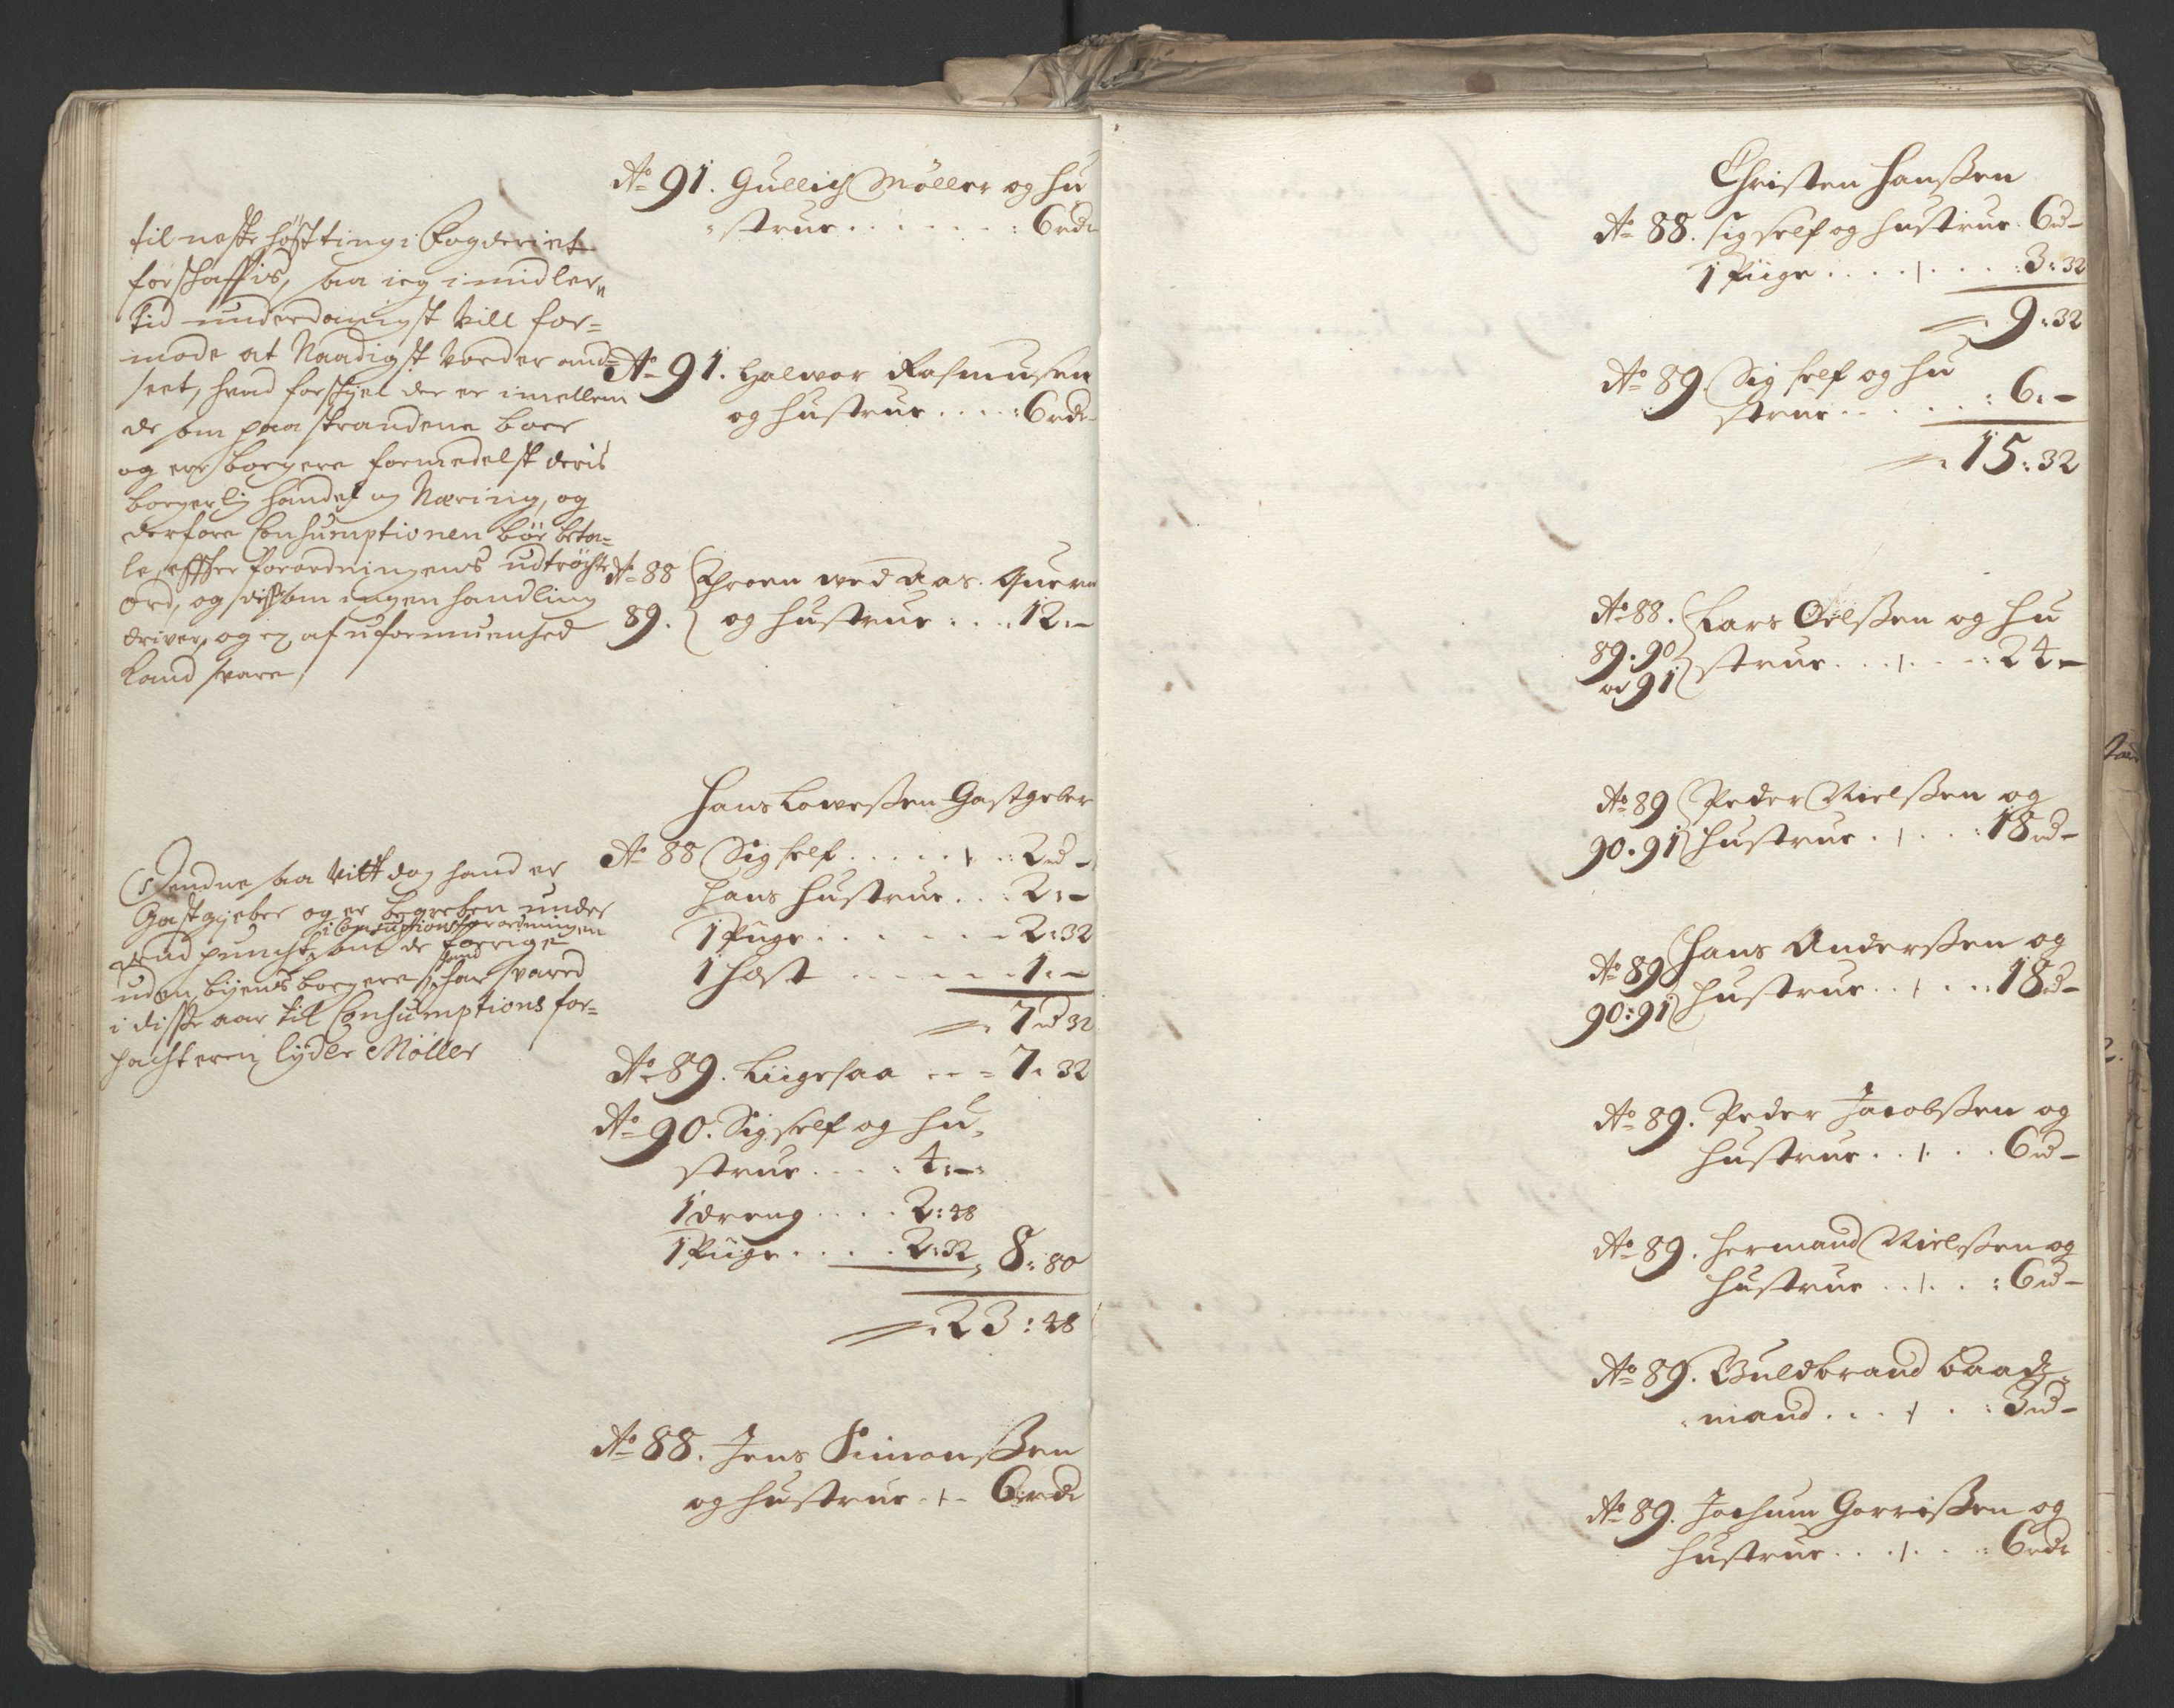 til neste høstting i Fogderiet
forschaffis, saa ieg imidler„
tid underdanigst vill for=
mode at Naadigst vorder and=
seet, hvad forschiel der er imellem
de som paa strandene boer
og ere borgere formedelst deris
borgerlig handel og Næring, og
derfore Consumptionen bør beta=
le, effter forordningens udtrøchte
Ord, og som ingen handling
driver, og ej af uformuenhed
kand svare
Denne saa vitt dog hand er
Gastgieber og er begreben under
i Consumptions forordningen
puncht, som de forrige
uden byens borgere, hand har svared
i disse aar til Consumptions for=
pachteren Lyder Møller
Ao 91. Gullich Møller og hu
strue . . . . . . : 6 rdr
Ao 91. Halvor Rasmusen
og hustrue . . . . : 6 rdr
Ao 88 Throen ved Aas. Quern
89. og hustrue . . . 12: –
Hans Lowessen Gastgeber
Ao 88 Sig self . . . . . : 2 rd –
hans hustrue . . : 2: –
1 Piige . . . . . . – 2: 32
1 hest . . . . . . 1: –
7 rd 32
Ao 89. Liigesaa . . = 7: 32
Ao 90. Sig self og hu„
strue . . . : 4: –:
1 dreng . . . . 2: 48
1 Piige . . . . 2: 32 8: 80
23: 48
Ao 88. Jens Simonssen
og hustrue . . – 6 rdr
Christen Hanssen
Ao 88. sig self og hustrue. 6 rd –
1 Piige . . . . . . . : 3: 32
9: 32
Ao 89. Sig self og hu
strue . . . . . : 6: –
15: 32
Ao 88. Lars Oelssen og hu
89. 90 strue . . . . . : 24 –
oc 91
Ao 89 Peder Nielssen og
90. 91 hustrue . . . . : 18 rd –
Ao 89 Hans Anderssen og
90: 91 hustrue . . . . . : 18 rd –
Ao 89. Peder Jacobssen og
hustrue . . . . . 6 rd –
Ao 89. Hermand Nielssen og
hustrue . . . . : 6 rd –
Ao 89. Guldbrand Baadz„
mand . . . . . : 3 rd –
Ao 89. Jochum Gorrissen og
hustrue . . . . . : 6 rdr